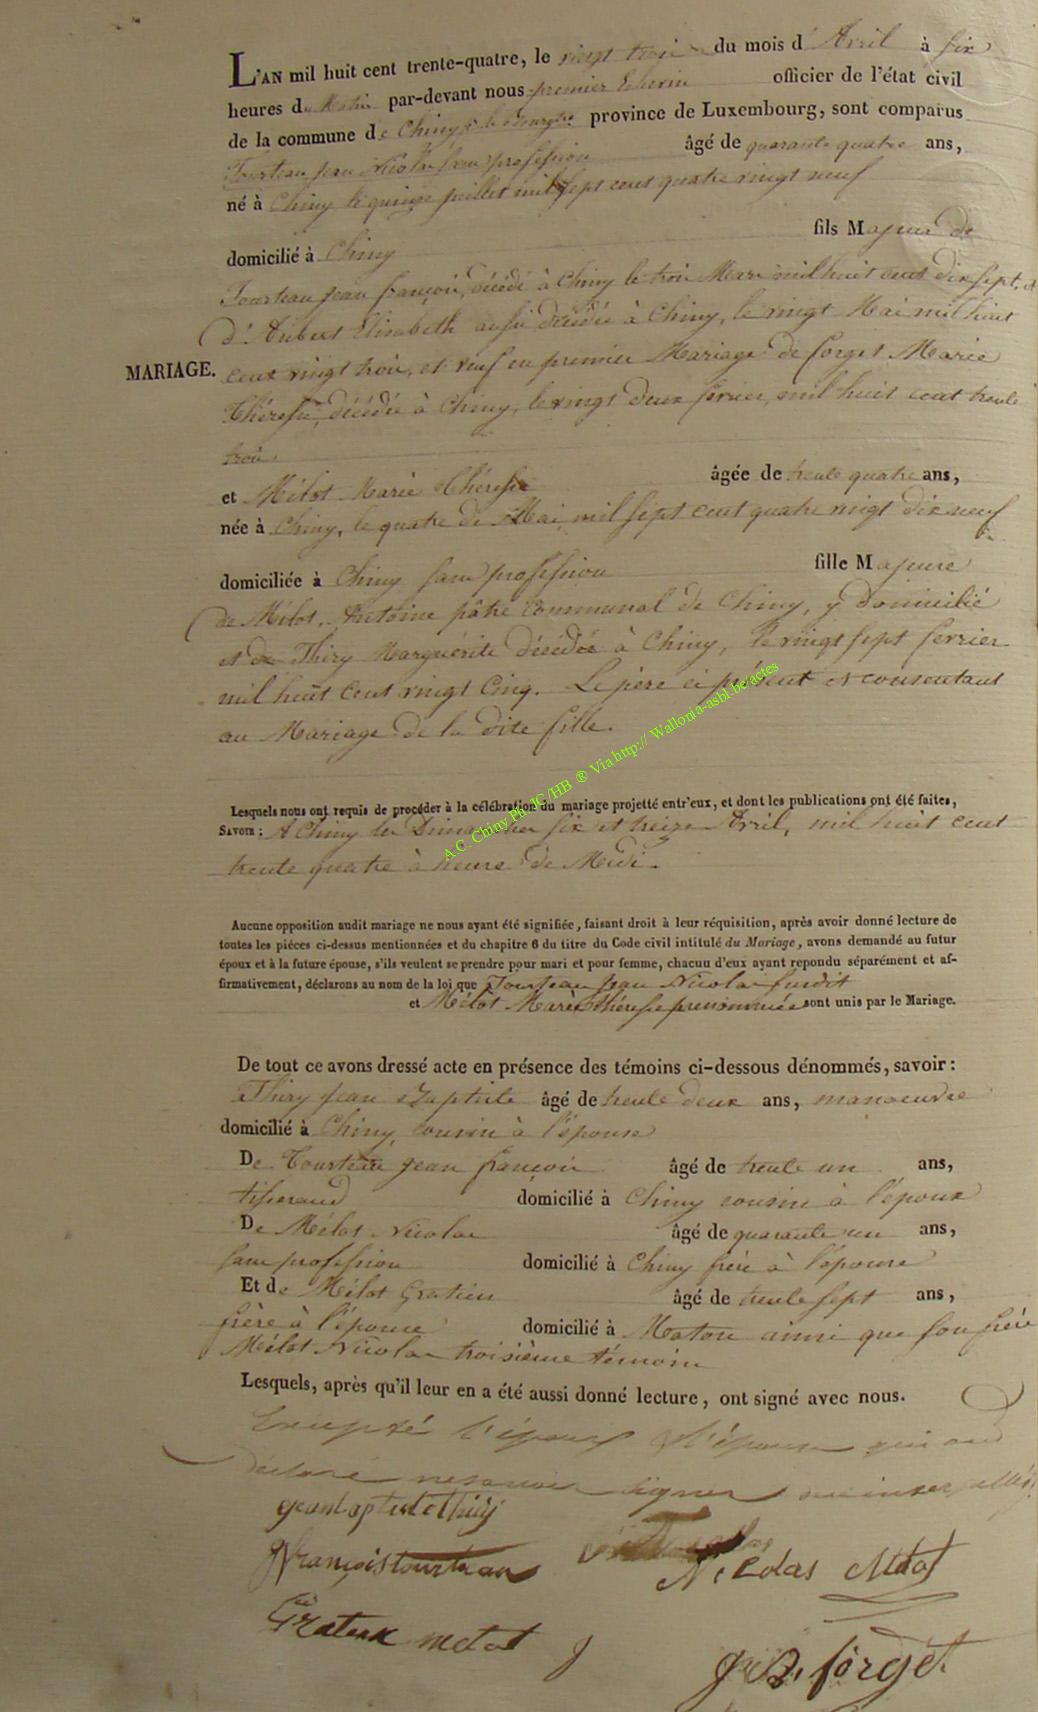 L'AN mil huit cent trente-quatre, le vingt trois du mois d'Avril à six
heures du Matin par-devant nous premier Echevin officier de l'état civil
de la commune de Chiny province de Luxembourg, sont comparus
Tourteau Jean Nicolas sans profession âgé de quarante quatre ans,
né à Chiny le quinze juillet mil sept cent quatre vingt neuf
domicilié à Chiny fils Majeur de
Tourteau Jean françois, décédé à Chiny le trois Mars mil huit cent dix sept, et
d'Aubert Elisabeth aussi décédée à Chiny, le vingt Mai mil huit
MARIAGE. cent vingt trois, et veuf en premier Mariage de forget Marie
Thérèse, décédée à Chiny, le vingt deux fevrier, mil huit cent trente
trois.
et Mélot Marie Thérèse âgée de trente quatre ans,
née à Chiny, le quatre de Mai mil sept cent quatre vingt dix neuf
domiciliée à Chiny sans profession fille Majeure
de Mélot Antoine pâtre communal de Chiny, y domicilié
et de Thiry Marguérite décédée à Chiny, le vingt sept fevrier
mil huit cent vingt cinq. Le père ci présent et consentant
au Mariage de la dite fille.
A.C. Chiny Ph. JC/HB ® Via http:// Wallonia-asbl.be/actes
Lesquels nous ont requis de procéder à la célébration du mariage projetté entr'eux, et dont les publications ont été faites,
SAVOIR : A Chiny les Dimanches six et treize Avril, mil huit cent
trente quatre à heure de Midi.
Aucune opposition audit mariage ne nous ayant été signifiée, faisant droit à leur réquisition, après avoir donné lecture de
toutes les pièces ci-dessus mentionnées et du chapitre 6 du titre du Code civil intitulé du Mariage, avons demandé au futur
époux et à la future épouse, s'ils veulent se prendre pour mari et pour femme, chacun d'eux ayant repondu séparément et af-
firmativement, déclarons au nom de la loi que Tourteau Jean Nicolas susdit
et Mélot Marie Thérèse prenommée sont unis par le Mariage.
De tout ce avons dressé acte en présence des témoins ci-dessous dénommés, savoir :
Thiry Jean Baptiste âgé de trente deux ans, manoeuvre
domicilié à Chiny, cousin à l'épouse
De Tourteau Jean françois âgé de trente un ans,
tisserand domicilié à Chiny cousin à l'époux
De Mélot Nicolas âgé de quarante un ans,
sans profession domicilié à Chiny frère à l'épouse
Et de Mélot Gratien âgé de trente sept ans,
frère à l'épouse domicilié à Maton ainsi que son frère
Mélot Nicolas troisième témoin
Lesquels, après qu'il leur en a été aussi donné lecture, ont signé avec nous.
Excepté l'époux et l'épouse qui ont
déclaré ne savoir signer
jean baptiste thiry
J françois tourteau Nicolas Melot
Gratien melot
J. B. forget